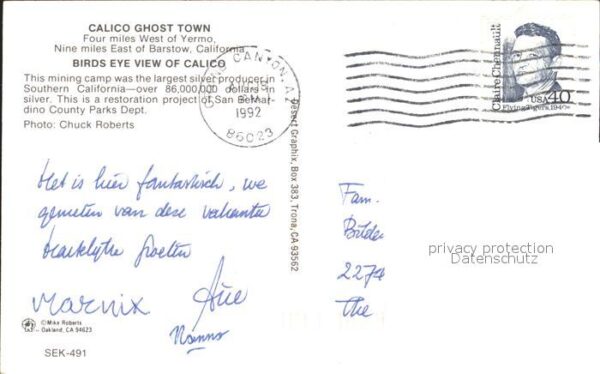 CALICO GHOST TOWN
Four miles West of Yermo,
Nine miles East of Barstow, California
BIRDS EYE VIEW OF CALICO
This mining camp was the largest silver producer in
Southern California—over 86,000,000 dollars in
silver. This is a restoration project of San Bernar-
dino County Parks Dept.
Photo: Chuck Roberts
CANYON, AZ
1992
86023
Claire Chennault
USA 40
Flying Tigers, 1940s
Desert Graphix, Box 383, Trona, CA 93562
Het is hier fantastisch, we
genieten van deze vakantie
hartelijke groeten
Marnix
Nanno
Fam.
2274
the
privacy protection
Datenschutz
© Mike Roberts
Oakland, CA 94623
SEK-491